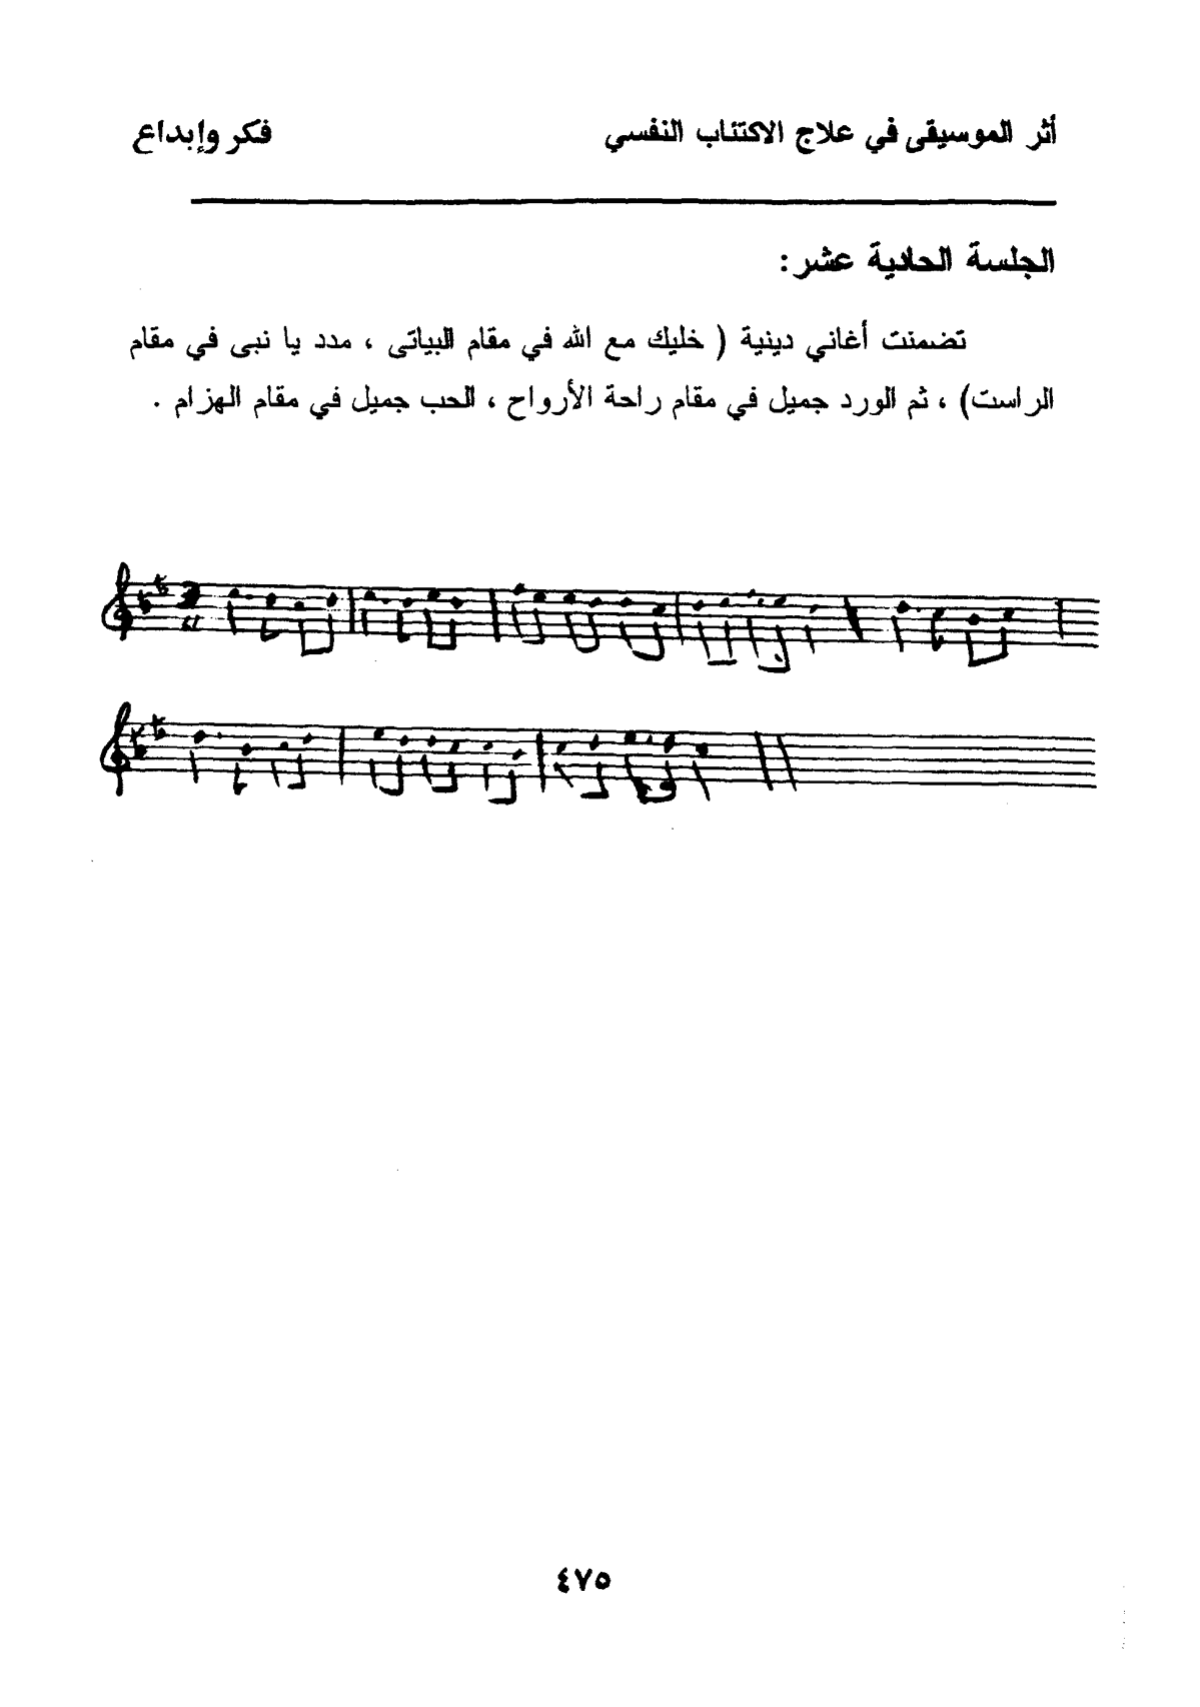 أثر الموسيقى في علاج الاكتئاب النفسي فكر وإبداع
الجلسة الحادية عشر:
تضمنت أغاني دينية ( خليك مع الله في مقام البياتى ، مدد يا نبى في مقام
الراست) ، ثم الورد جميل في مقام راحة الأرواح ، الحب جميل في مقام الهزام .
٤٧٥